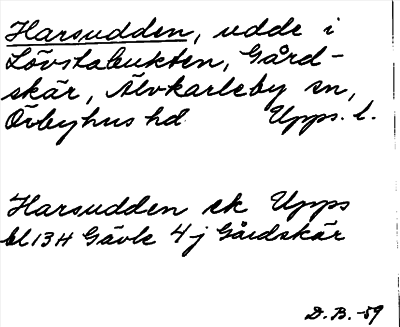 Harsudden, udde i
Lövstabukten, Gård-
skär, Älvkarleby sn,
Örbyhus hd. Upps. l.
Harsudden ek Upps
bl 13H Gävle 4j Gårdskär
D.B. -59